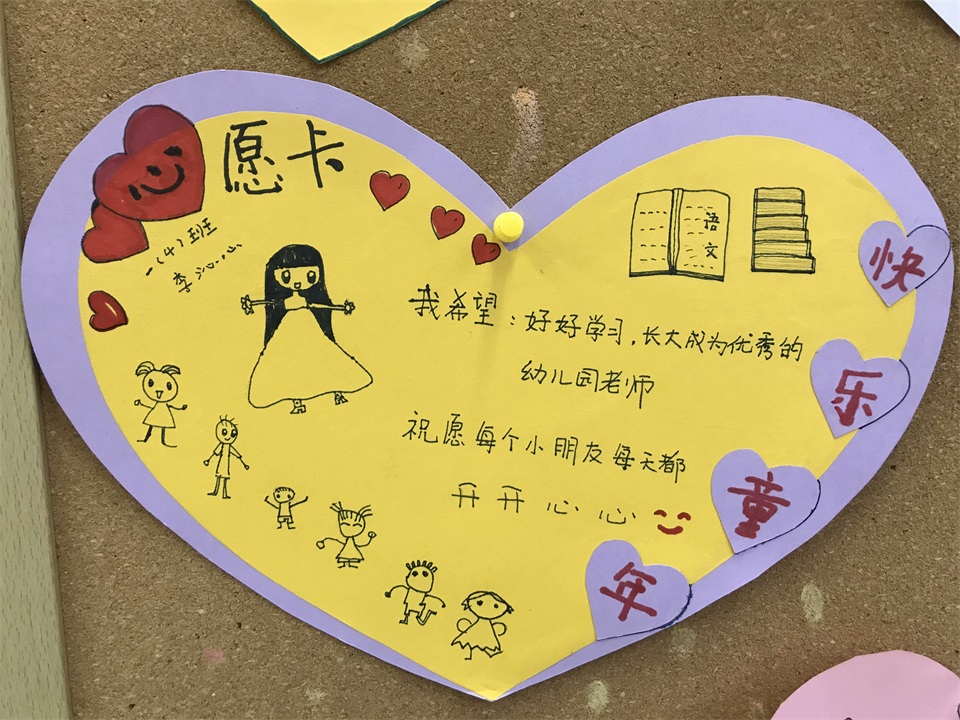 心愿卡
一(4)班
李沁心
语文
我希望：好好学习，长大成为优秀的
幼儿园老师
祝愿每个小朋友每天都
开开心心
快
乐
童
年